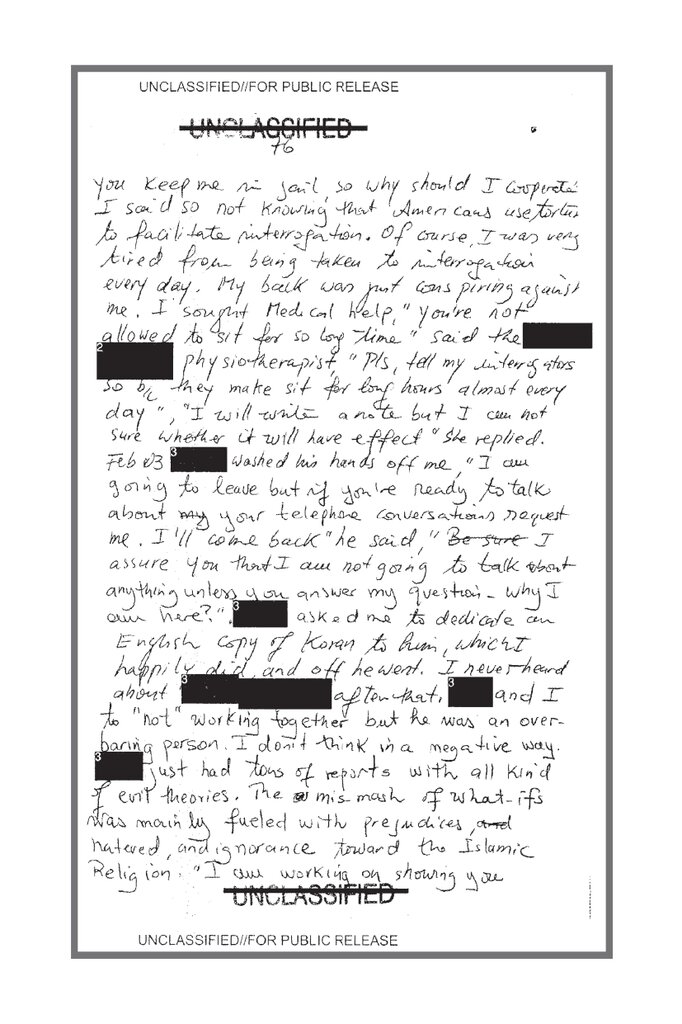 UNCLASSIFIED//FOR PUBLIC RELEASE
UNCLASSIFIED
76
you keep me in jail, so why should I cooperate
I said so not knowing that Americans use tortur
to facilitate interrogation. Of course, I was very
tired from being taken to interrogation
every day. My back was just conspiring against
me. I sought Medical help, "You're not
allowed to sit for so long time" said the
2
physiotherapist, "Pls, tell my interrogators
so b/c they make sit for long hours almost every
day", "I will write a note but I am not
sure whether it will have effect" She replied.
Feb 03 3 washed his hands off me, "I am
going to leave but if you're ready to talk
about my your telephone conversations request
me. I'll come back" he said, " Be sure I
assure you that I am not going to talk about
anything unless you answer my question - why I
am here?". 3 asked me to dedicate an
English copy of Koran to him, which I
happily did, and off he went. I never heard
about 3 after that. 3 and I
to "not" working together but he was an over-
baring person. I don't think in a negative way.
3 just had tons of reports with all kind
of evil theories. The mis-mash of what-ifs
was mainly fueled with prejudices, and
hatered, and ignorance toward the Islamic
Religion. "I am working on showing you
UNCLASSIFIED
UNCLASSIFIED//FOR PUBLIC RELEASE